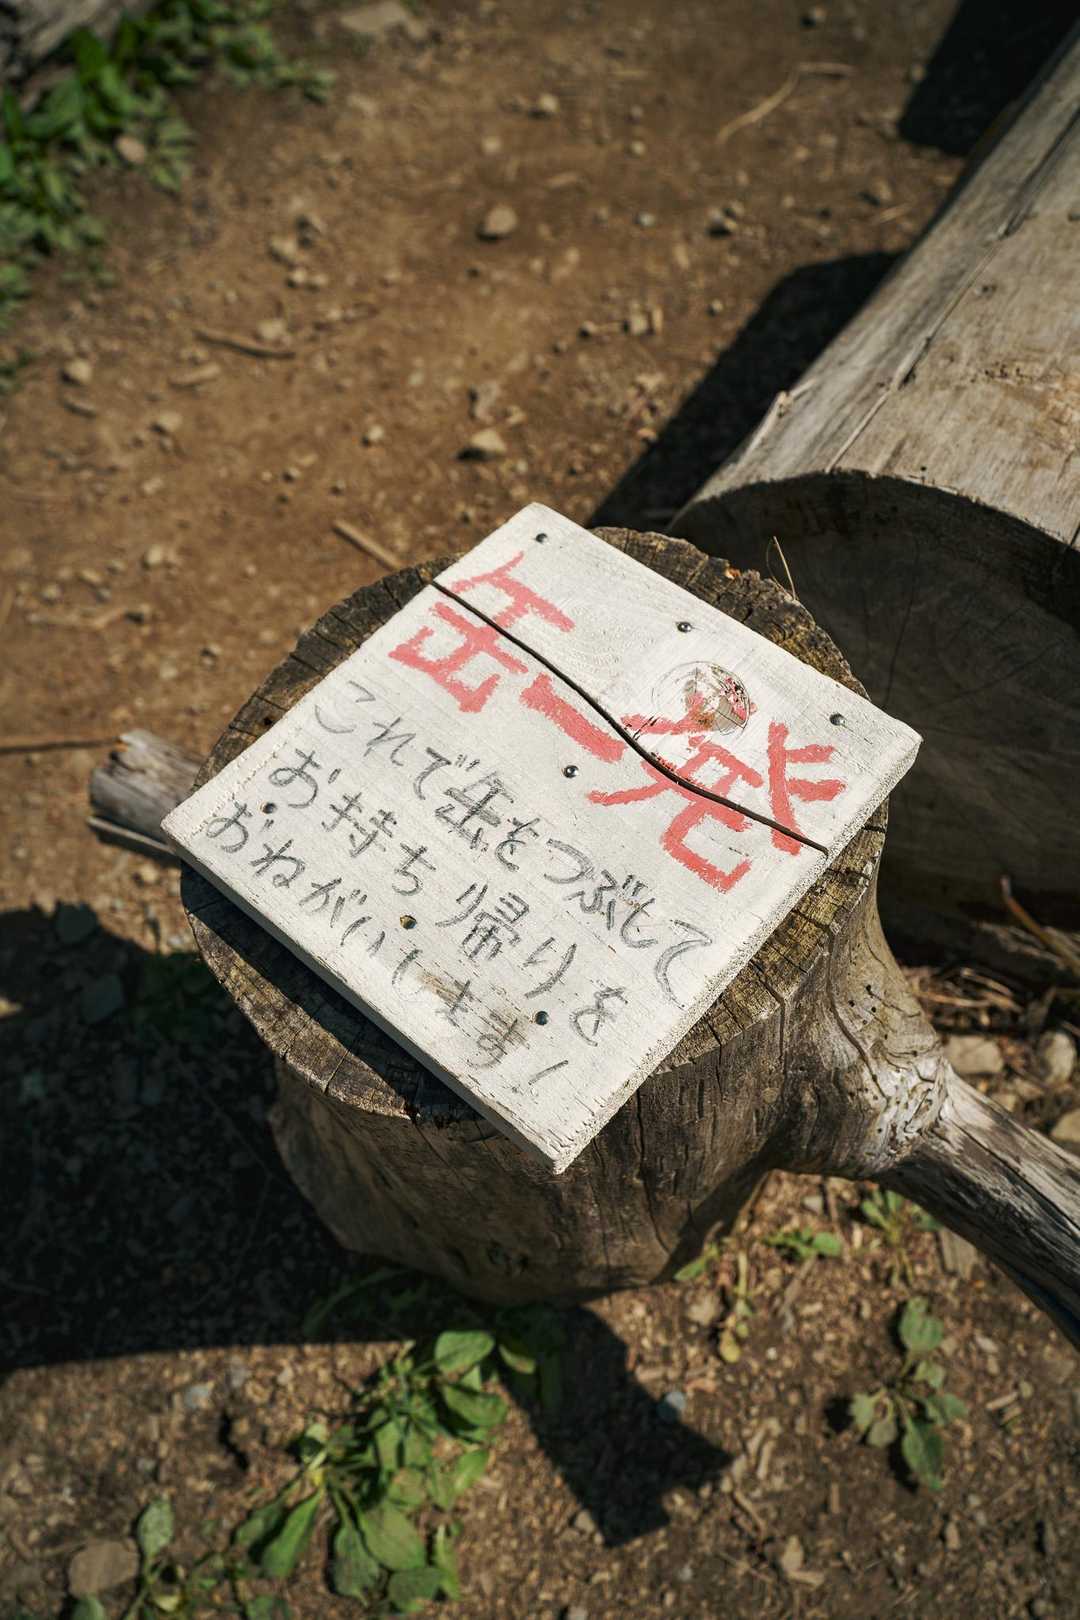 缶一発
これで缶をつぶして
お持ち帰りを
おねがいします!